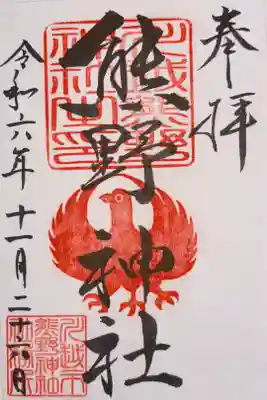 奉拝
熊野神社
川越熊野
神社之印
令和六年十一月二十六日
川越市
熊野神社